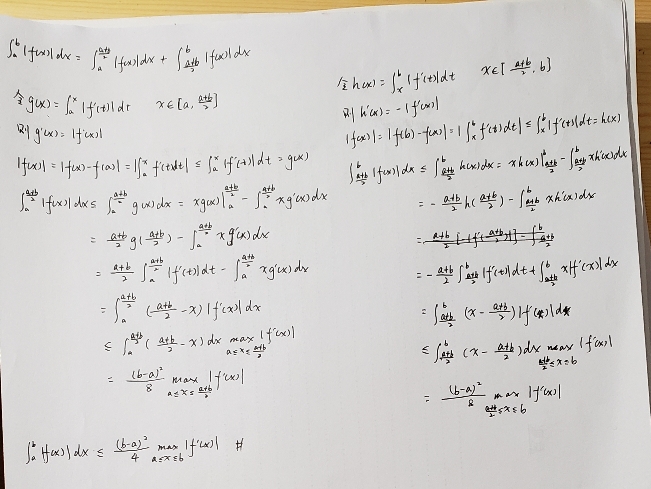 ∫_a^b |f(x)| dx = ∫_a^{(a+b)/2} |f(x)| dx + ∫_{(a+b)/2}^b |f(x)| dx
令 g(x) = ∫_a^x |f'(t)| dt   x∈[a, (a+b)/2]
则 g'(x) = |f'(x)|
|f(x)| = |f(x) - f(a)| = |∫_a^x f'(t)dt| ≤ ∫_a^x |f'(t)| dt = g(x)
∫_a^{(a+b)/2} |f(x)| dx ≤ ∫_a^{(a+b)/2} g(x) dx = xg(x)|_a^{(a+b)/2} - ∫_a^{(a+b)/2} xg'(x) dx
= (a+b)/2 g((a+b)/2) - ∫_a^{(a+b)/2} xg'(x) dx
= (a+b)/2 ∫_a^{(a+b)/2} |f'(t)| dt - ∫_a^{(a+b)/2} xg'(x) dx
= ∫_a^{(a+b)/2} ((a+b)/2 - x) |f'(x)| dx
≤ ∫_a^{(a+b)/2} ((a+b)/2 - x) dx max_{a≤x≤(a+b)/2} |f'(x)|
= (b-a)²/8 max_{a≤x≤(a+b)/2} |f'(x)|
∫_a^b |f(x)| dx ≤ (b-a)²/4 max_{a≤x≤b} |f'(x)| #
令 h(x) = ∫_x^b |f'(t)| dt   x∈[(a+b)/2, b]
则 h'(x) = -|f'(x)|
|f(x)| = |f(b) - f(x)| = |∫_x^b f'(t) dt| ≤ ∫_x^b |f'(t)| dt = h(x)
∫_{(a+b)/2}^b |f(x)| dx ≤ ∫_{(a+b)/2}^b h(x) dx = xh(x)|_{(a+b)/2}^b - ∫_{(a+b)/2}^b xh'(x) dx
= -(a+b)/2 h((a+b)/2) - ∫_{(a+b)/2}^b xh'(x) dx
= -(a+b)/2 ∫_{(a+b)/2}^b |f'(t)| dt + ∫_{(a+b)/2}^b x|f'(x)| dx
= ∫_{(a+b)/2}^b (x - (a+b)/2) |f'(x)| dx
≤ ∫_{(a+b)/2}^b (x - (a+b)/2) dx max_{(a+b)/2≤x≤b} |f'(x)|
= (b-a)²/8 max_{(a+b)/2≤x≤b} |f'(x)|